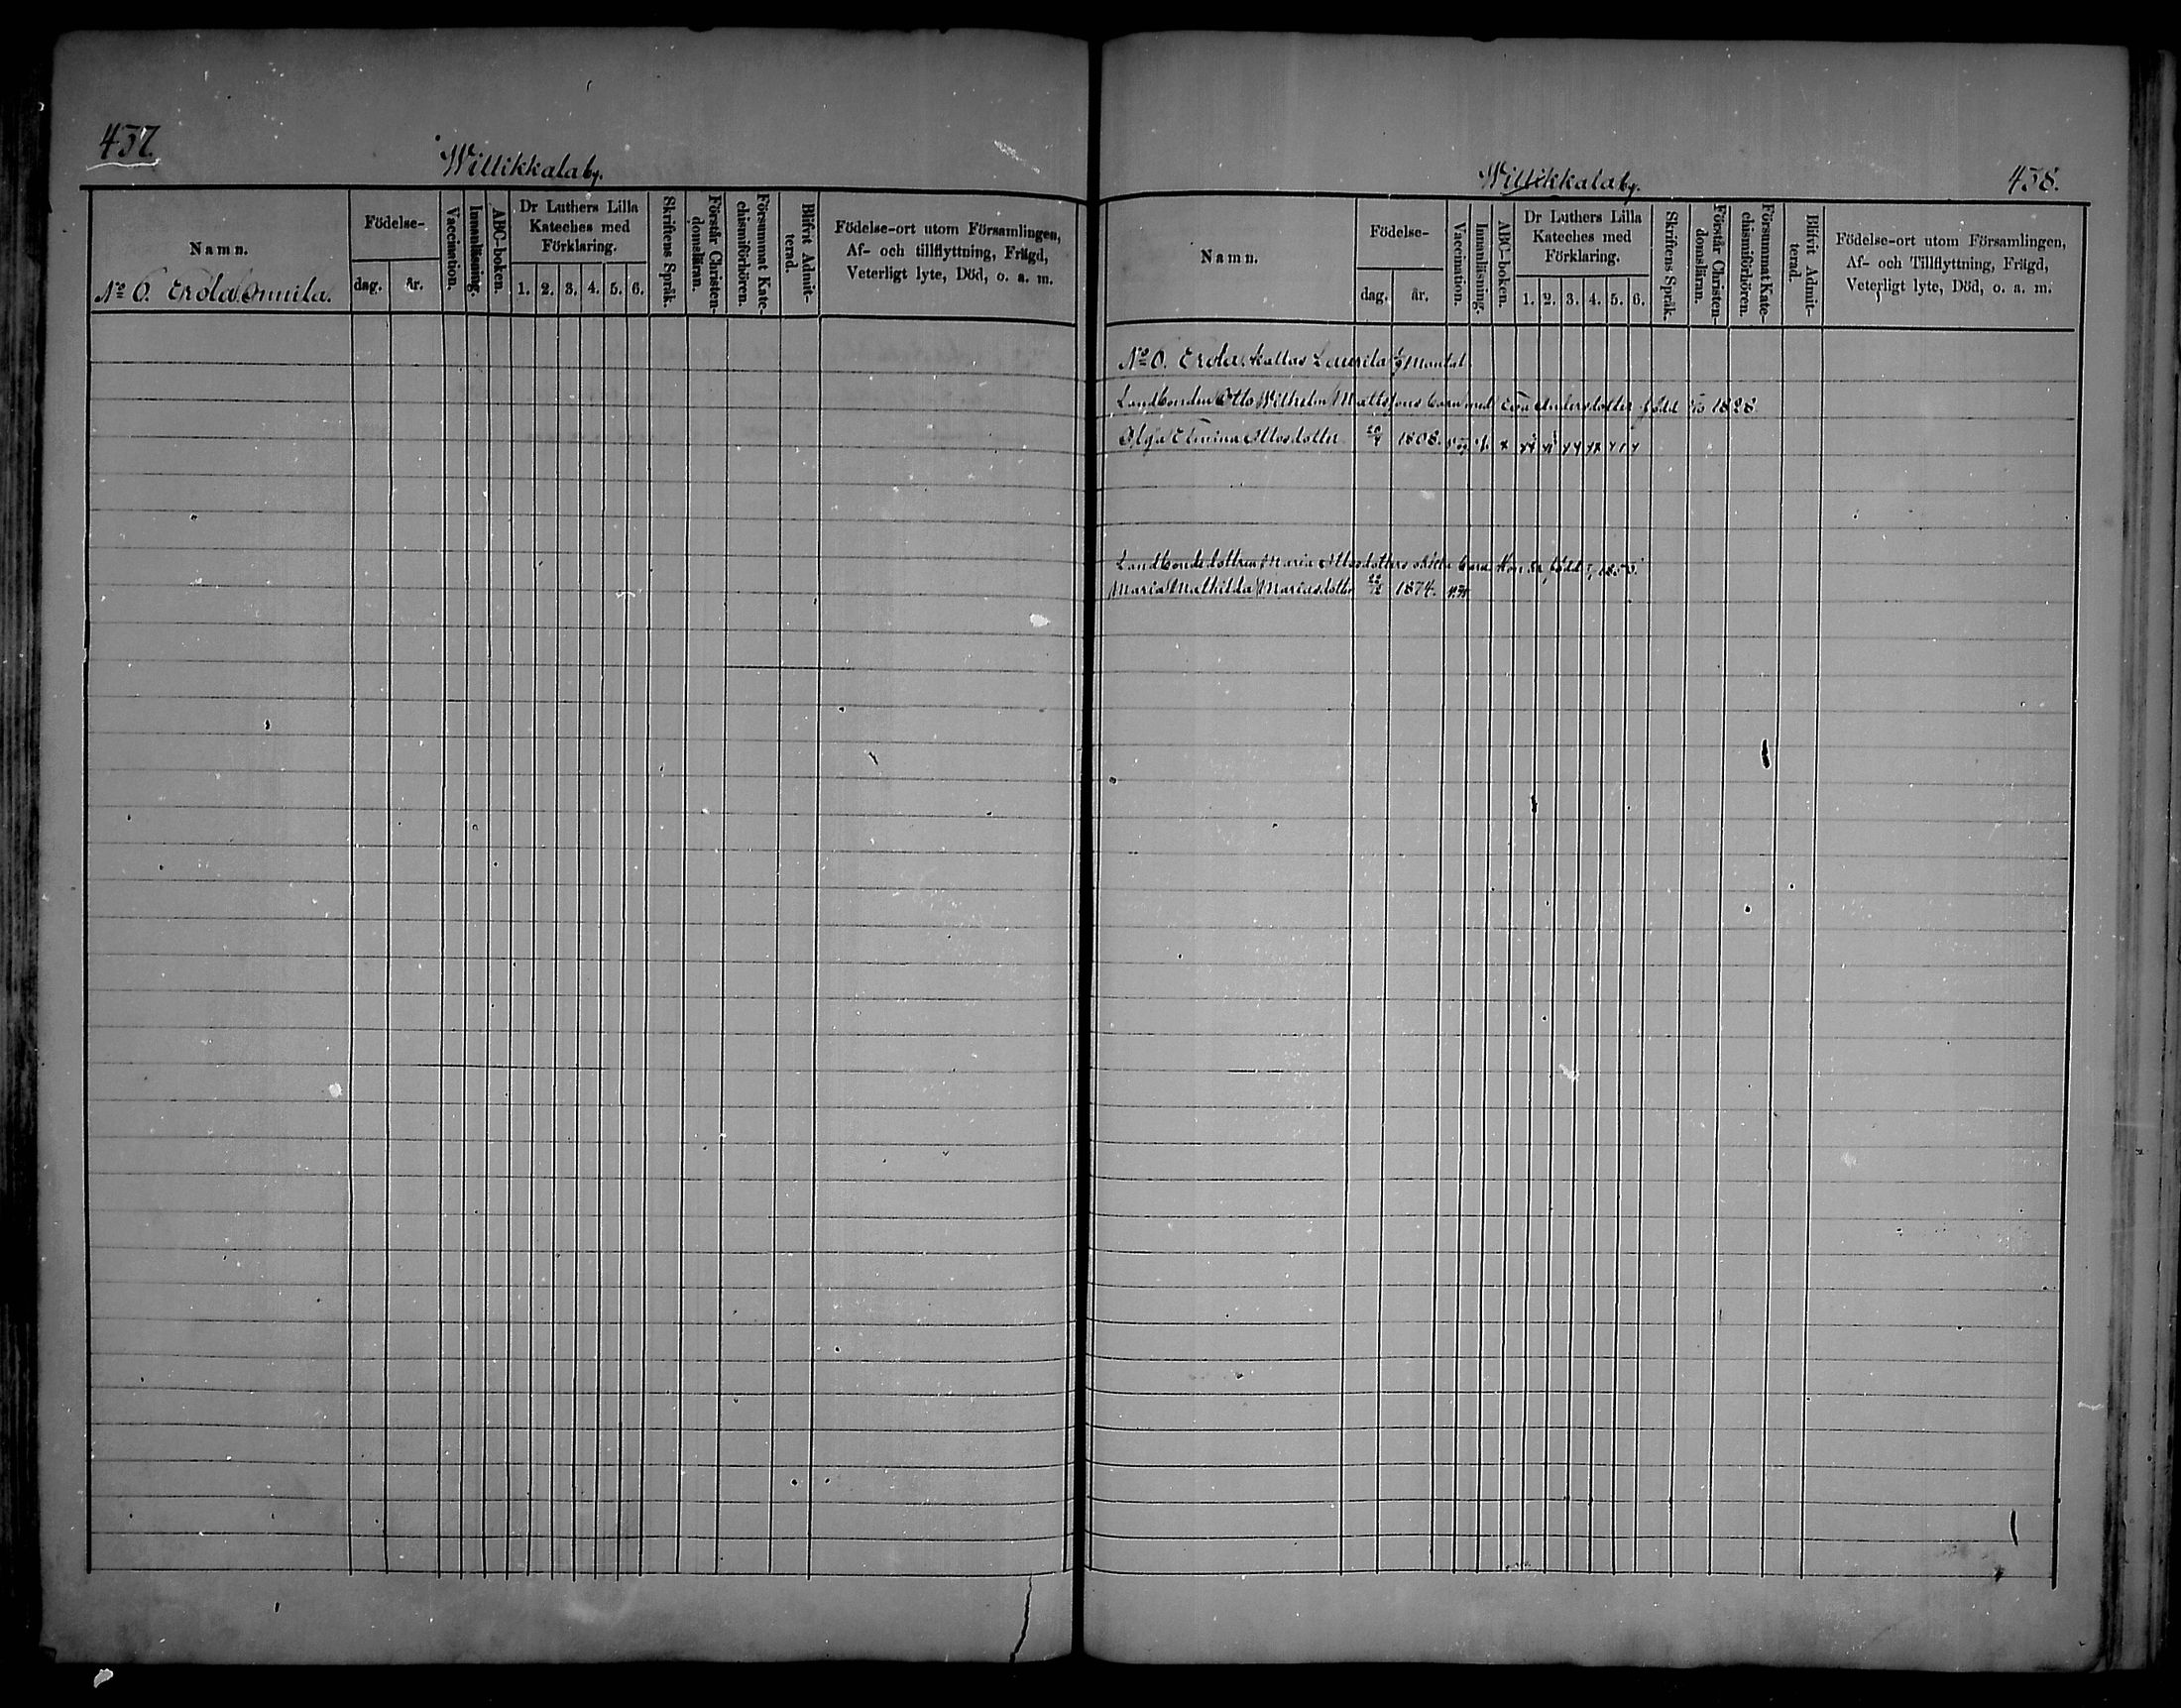 437.
Willikkala by.
Namn.
Födelse-
dag. år.
Vaccination.
Innanläsning.
ABC-boken.
Dr Luthers Lilla
Kateches med
Förklaring.
1. 2. 3. 4. 5. 6.
Skriftens Språk.
Förstår Christen-
domsläran.
Försummat Kate-
chismiförhören.
Blifvit Admit-
terad.
Födelse-ort utom Församlingen,
Af- och tillflyttning, Frägd,
Veterligt lyte, Död, o. a. m.
No 6. Erola Onnila.
Willikkala by.
438.
Namn.
Födelse-
dag. år.
Vaccination.
Innanläsning.
ABC-boken.
Dr Luthers Lilla
Kateches med
Förklaring.
1. 2. 3. 4. 5. 6.
Skriftens Språk.
Förstår Christen-
domsläran.
Försummat Kate-
chismiförhören.
Blifvit Admit-
terad.
Födelse-ort utom Församlingen,
Af- och Tillflyttning, Frägd,
Veterligt lyte, Död, o. a. m.
No 6. Erola Skattas Laurila Mantal.
Landbonden Otto Wilhelm Mattssons barn med Eva Andersdotter född 1828.
Olga Elmina Ottosdotter 1868.
Landbondedottren Maria Ottosdotters oäkta barn. Hon är född 1850.
Maria Mathilda Mariasdotter 1874.